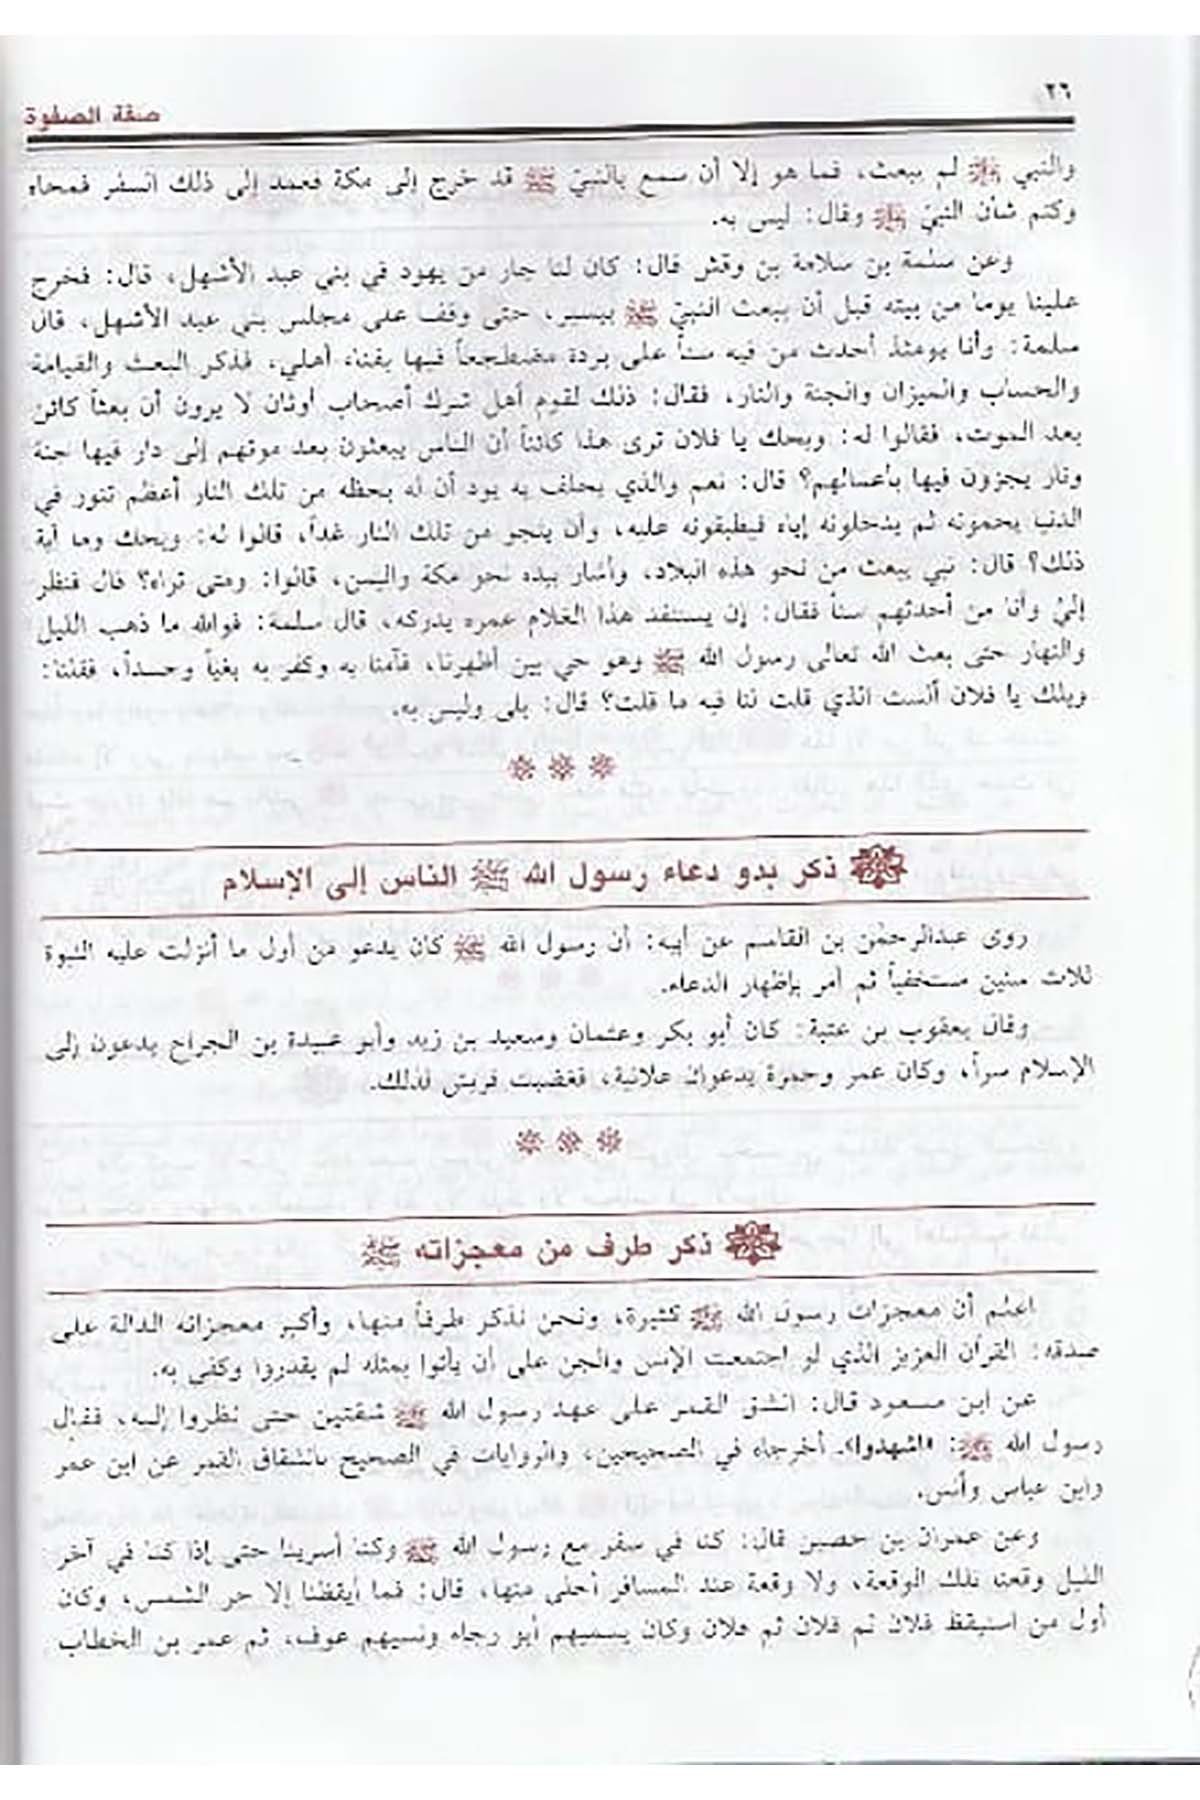 ٢٦
صفة الصفوة
والنبي ﷺ لم يبعث، فما هو إلا أن سمع بالنبيّ ﷺ قد خرج إلى مكة فعمد إلى ذلك السفر فمحاه
وكتم شأن النبيّ ﷺ وقال: ليس به.
وعن سلمة بن سلامة بن وقش قال: كان لنا جار من يهود في بني عبد الأشهل، قال: فخرج
علينا يوماً من بيته قبل أن يبعث النبيّ ﷺ بيسير، حتى وقف على مجلس بني عبد الأشهل، قال
سلمة: وأنا يومئذ أحدث من فيه سناً على بردة مضطجعاً فيها بفناء أهلي، فذكر البعث والقيامة
والحساب والميزان والجنة والنار، فقال: ذلك لقوم أهل شرك أصحاب أوثان لا يرون أن بعثاً كائن
بعد الموت، فقالوا له: ويحك يا فلان ترى هذا كائناً أن الناس يبعثون بعد موتهم إلى دار فيها جنة
ونار يجزون فيها بأعمالهم؟ قال: نعم والذي يحلف به يود أن له بحظه من تلك النار أعظم تنور في
الدنيا يحمونه ثم يدخلونه إياه فيطبقونه عليه، وأن ينجو من تلك النار غداً، قالوا له: ويحك وما آية
ذلك؟ قال: نبي يبعث من نحو هذه البلاد، وأشار بيده نحو مكة واليمن، قالوا: ومتى تراه؟ قال فنظر
إليّ وأنا من أحدثهم سناً فقال: إن يستنفد هذا الغلام عمره يدركه، قال سلمة: فوالله ما ذهب الليل
والنهار حتى بعث الله تعالى رسول الله ﷺ وهو حي بين أظهرنا، فآمنا به وكفر به بغياً وحسداً، فقلنا:
ويلك يا فلان ألست الذي قلت لنا فيه ما قلت؟ قال: بلى وليس به.
ذكر بدو دعاء رسول الله ﷺ الناس إلى الإسلام
روى عبدالرحمٰن بن القاسم عن أبيه: أن رسول الله ﷺ كان يدعو من أول ما أنزلت عليه النبوة
ثلاث سنين مستخفياً ثم أمر بإظهار الدعاء.
وقال يعقوب بن عتبة: كان أبو بكر وعثمان وسعيد بن زيد وأبو عبيدة بن الجراح يدعون إلى
الإسلام سراً، وكان عمر وحمزة يدعوان علانية، فغضبت قريش لذلك.
ذكر طرف من معجزاته ﷺ
اعلم أن معجزات رسول الله ﷺ كثيرة، ونحن نذكر طرفاً منها، وأكبر معجزاته الدالة على
صدقه: القرآن العزيز الذي لو اجتمعت الإنس والجن على أن يأتوا بمثله لم يقدروا وكفى به.
عن ابن مسعود قال: انشق القمر على عهد رسول الله ﷺ شقتين حتى نظروا إليه، فقال
رسول الله ﷺ: «اشهدوا». أخرجاه في الصحيحين، والروايات في الصحيح بانشقاق القمر عن ابن عمر
وابن عباس وأنس.
وعن عمران بن حصين قال: كنا في سفر مع رسول الله ﷺ وكنا أسرينا حتى إذا كنا في آخر
الليل وقعنا تلك الوقعة، ولا وقعة عند المسافر أحلى منها، قال: فما أيقظنا إلا حر الشمس، وكان
أول من استيقظ فلان ثم فلان ثم فلان وكان يسميهم أبو رجاء ونسيهم عوف، ثم عمر بن الخطاب